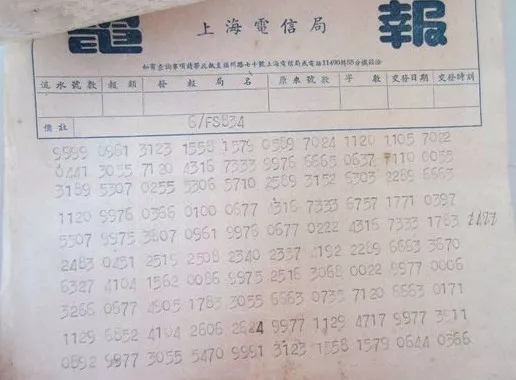 電報
上海電信局
如有查詢事項請帶此報至福州路七十號上海電信局或電話11490轉65分機接洽
流水號數 報類 發報局名 原來號數 字數 交發日期 交發時刻
備註 G/FS834
9999 0961 3123 1558 1579 0589 7024 1120 1105 7022
0441 3055 7120 4316 7333 9976 6665 0637 7110 0055
3189 5307 0255 5306 5710 2589 3152 6303 2289 6663
1120 9976 0366 0100 0677 4316 7333 6757 1771 0397
5507 9975 3807 0961 9976 0677 0222 4316 7333 1783
2483 0451 2519 2508 2340 2357 4192 2289 6663 3670
6327 4104 1562 0086 9975 2516 3068 0022 9977 0006
3266 0677 4905 1783 3055 6663 0735 7120 6663 0171
1129 6852 4104 2606 2624 9977 1129 4717 9977 3911
0892 9977 3055 5470 9991 3123 1558 1579 0644 0366